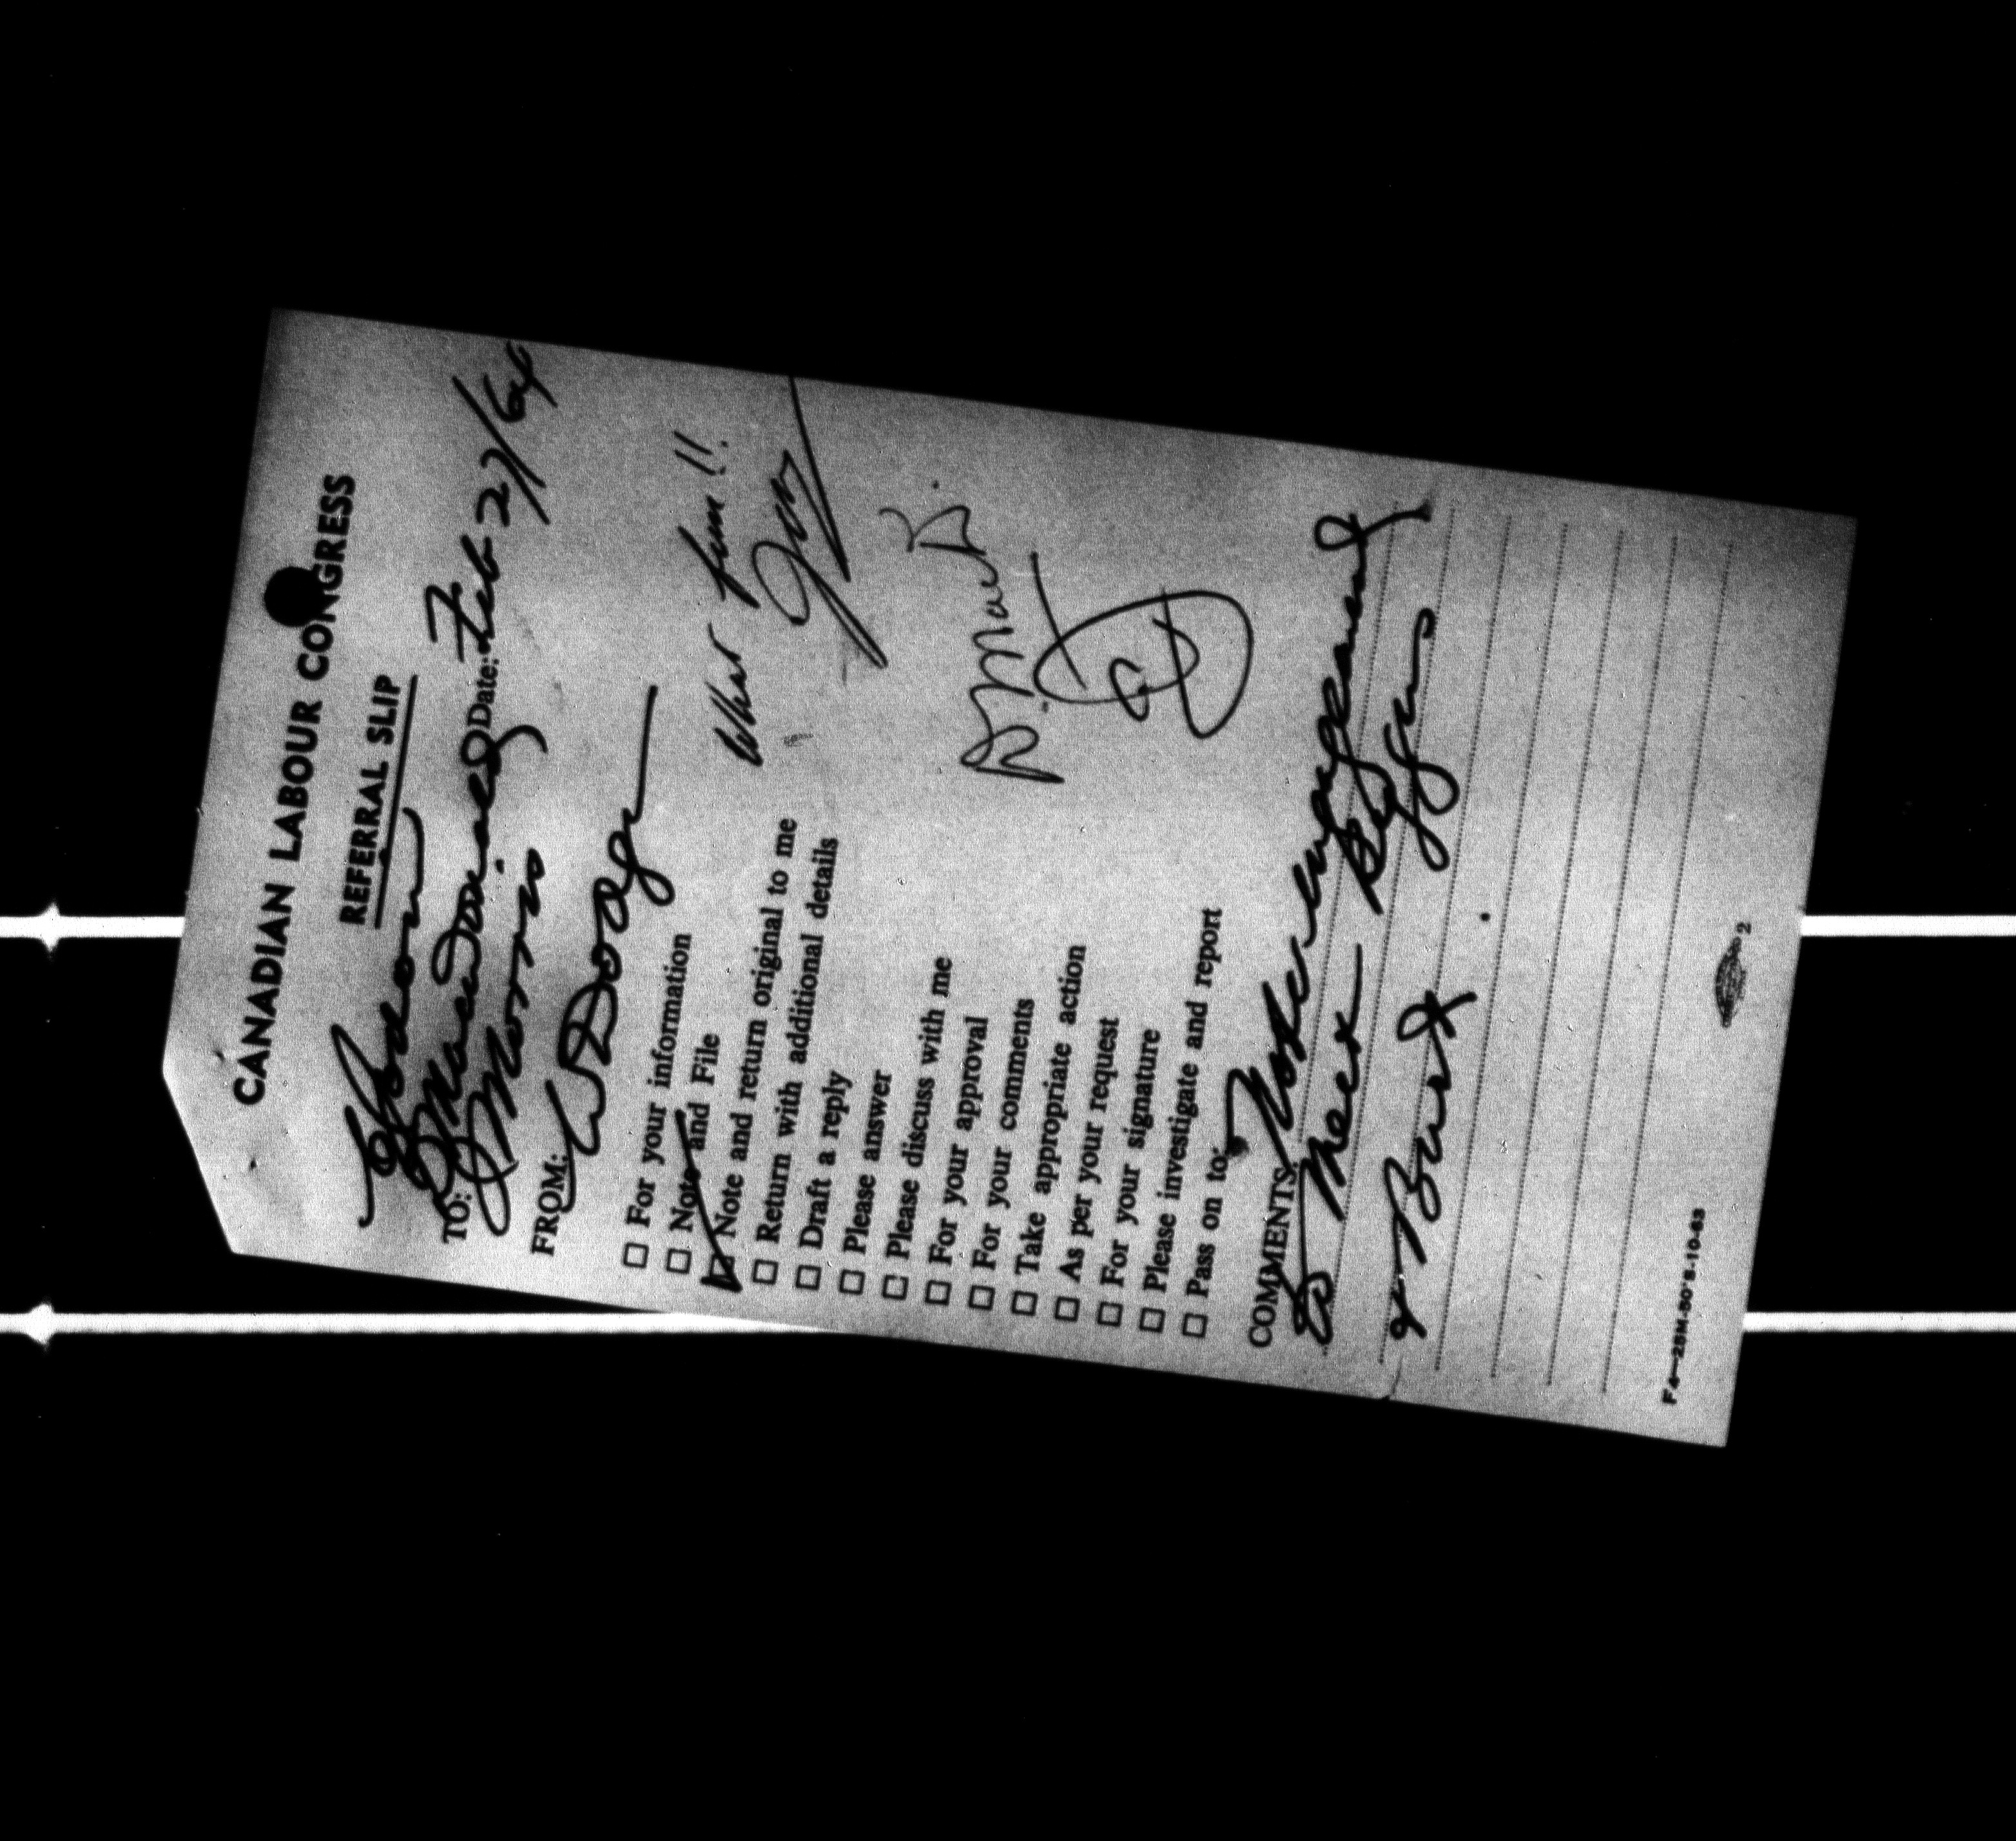 CANADIAN LABOUR CONGRESS
REFERRAL SLIP
TO: MacDonald
Morris
Date: Feb 27/64
FROM: W Dodge
What fun!!
☐ For your information
☐ Note and File
☑ Note and return original to me
☐ Return with additional details
☐ Draft a reply
☐ Please answer
☐ Please discuss with me
☐ For your approval
☐ For your comments
☐ Take appropriate action
☐ As per your request
☐ For your signature
☐ Please investigate and report
☐ Pass on to:
COMMENTS:
to Meet
Burt
F4—25M-50's-10-63
2